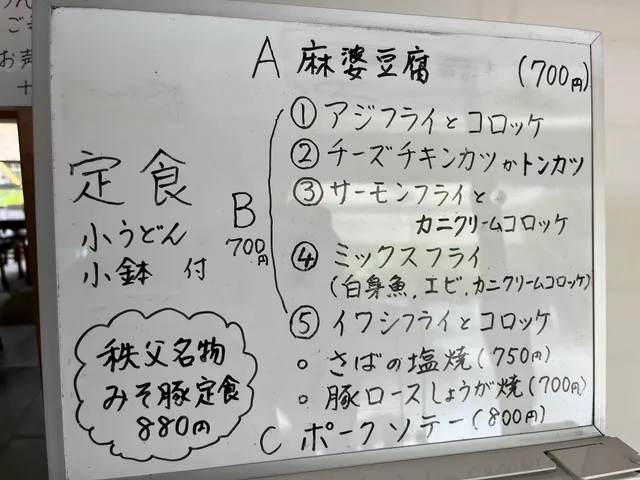 定食
小うどん
小鉢 付
秩父名物
みそ豚定食
880円
A 麻婆豆腐 (700円)
B 700円
① アジフライとコロッケ
② チーズチキンカツかトンカツ
③ サーモンフライと
カニクリームコロッケ
④ ミックスフライ
(白身魚、エビ、カニクリームコロッケ)
⑤ イワシフライとコロッケ
○ さばの塩焼(750円)
○ 豚ロースしょうが焼(700円)
C ポークソテー(800円)